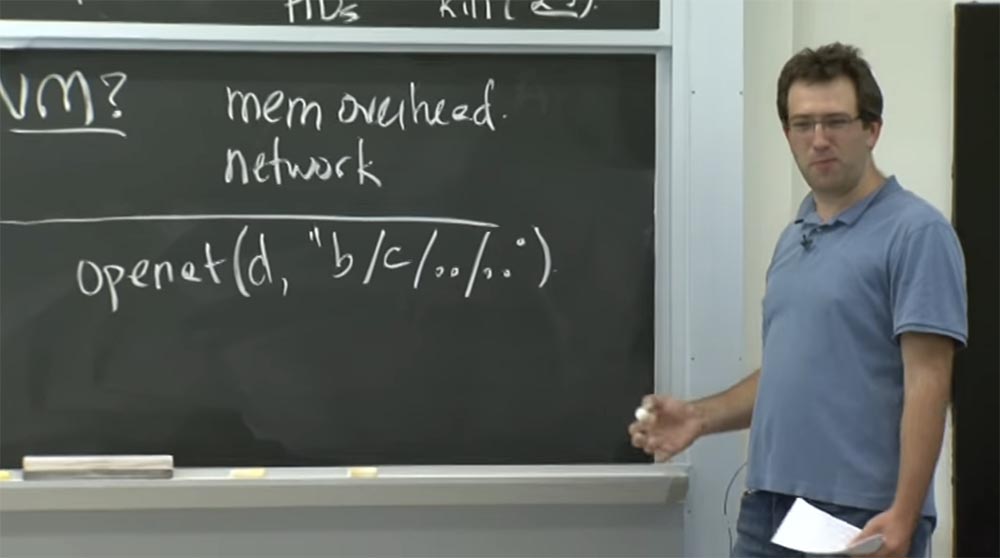 PIDs kill(
VM?
mem overhead.
network
openat(d, "b/c/../..")